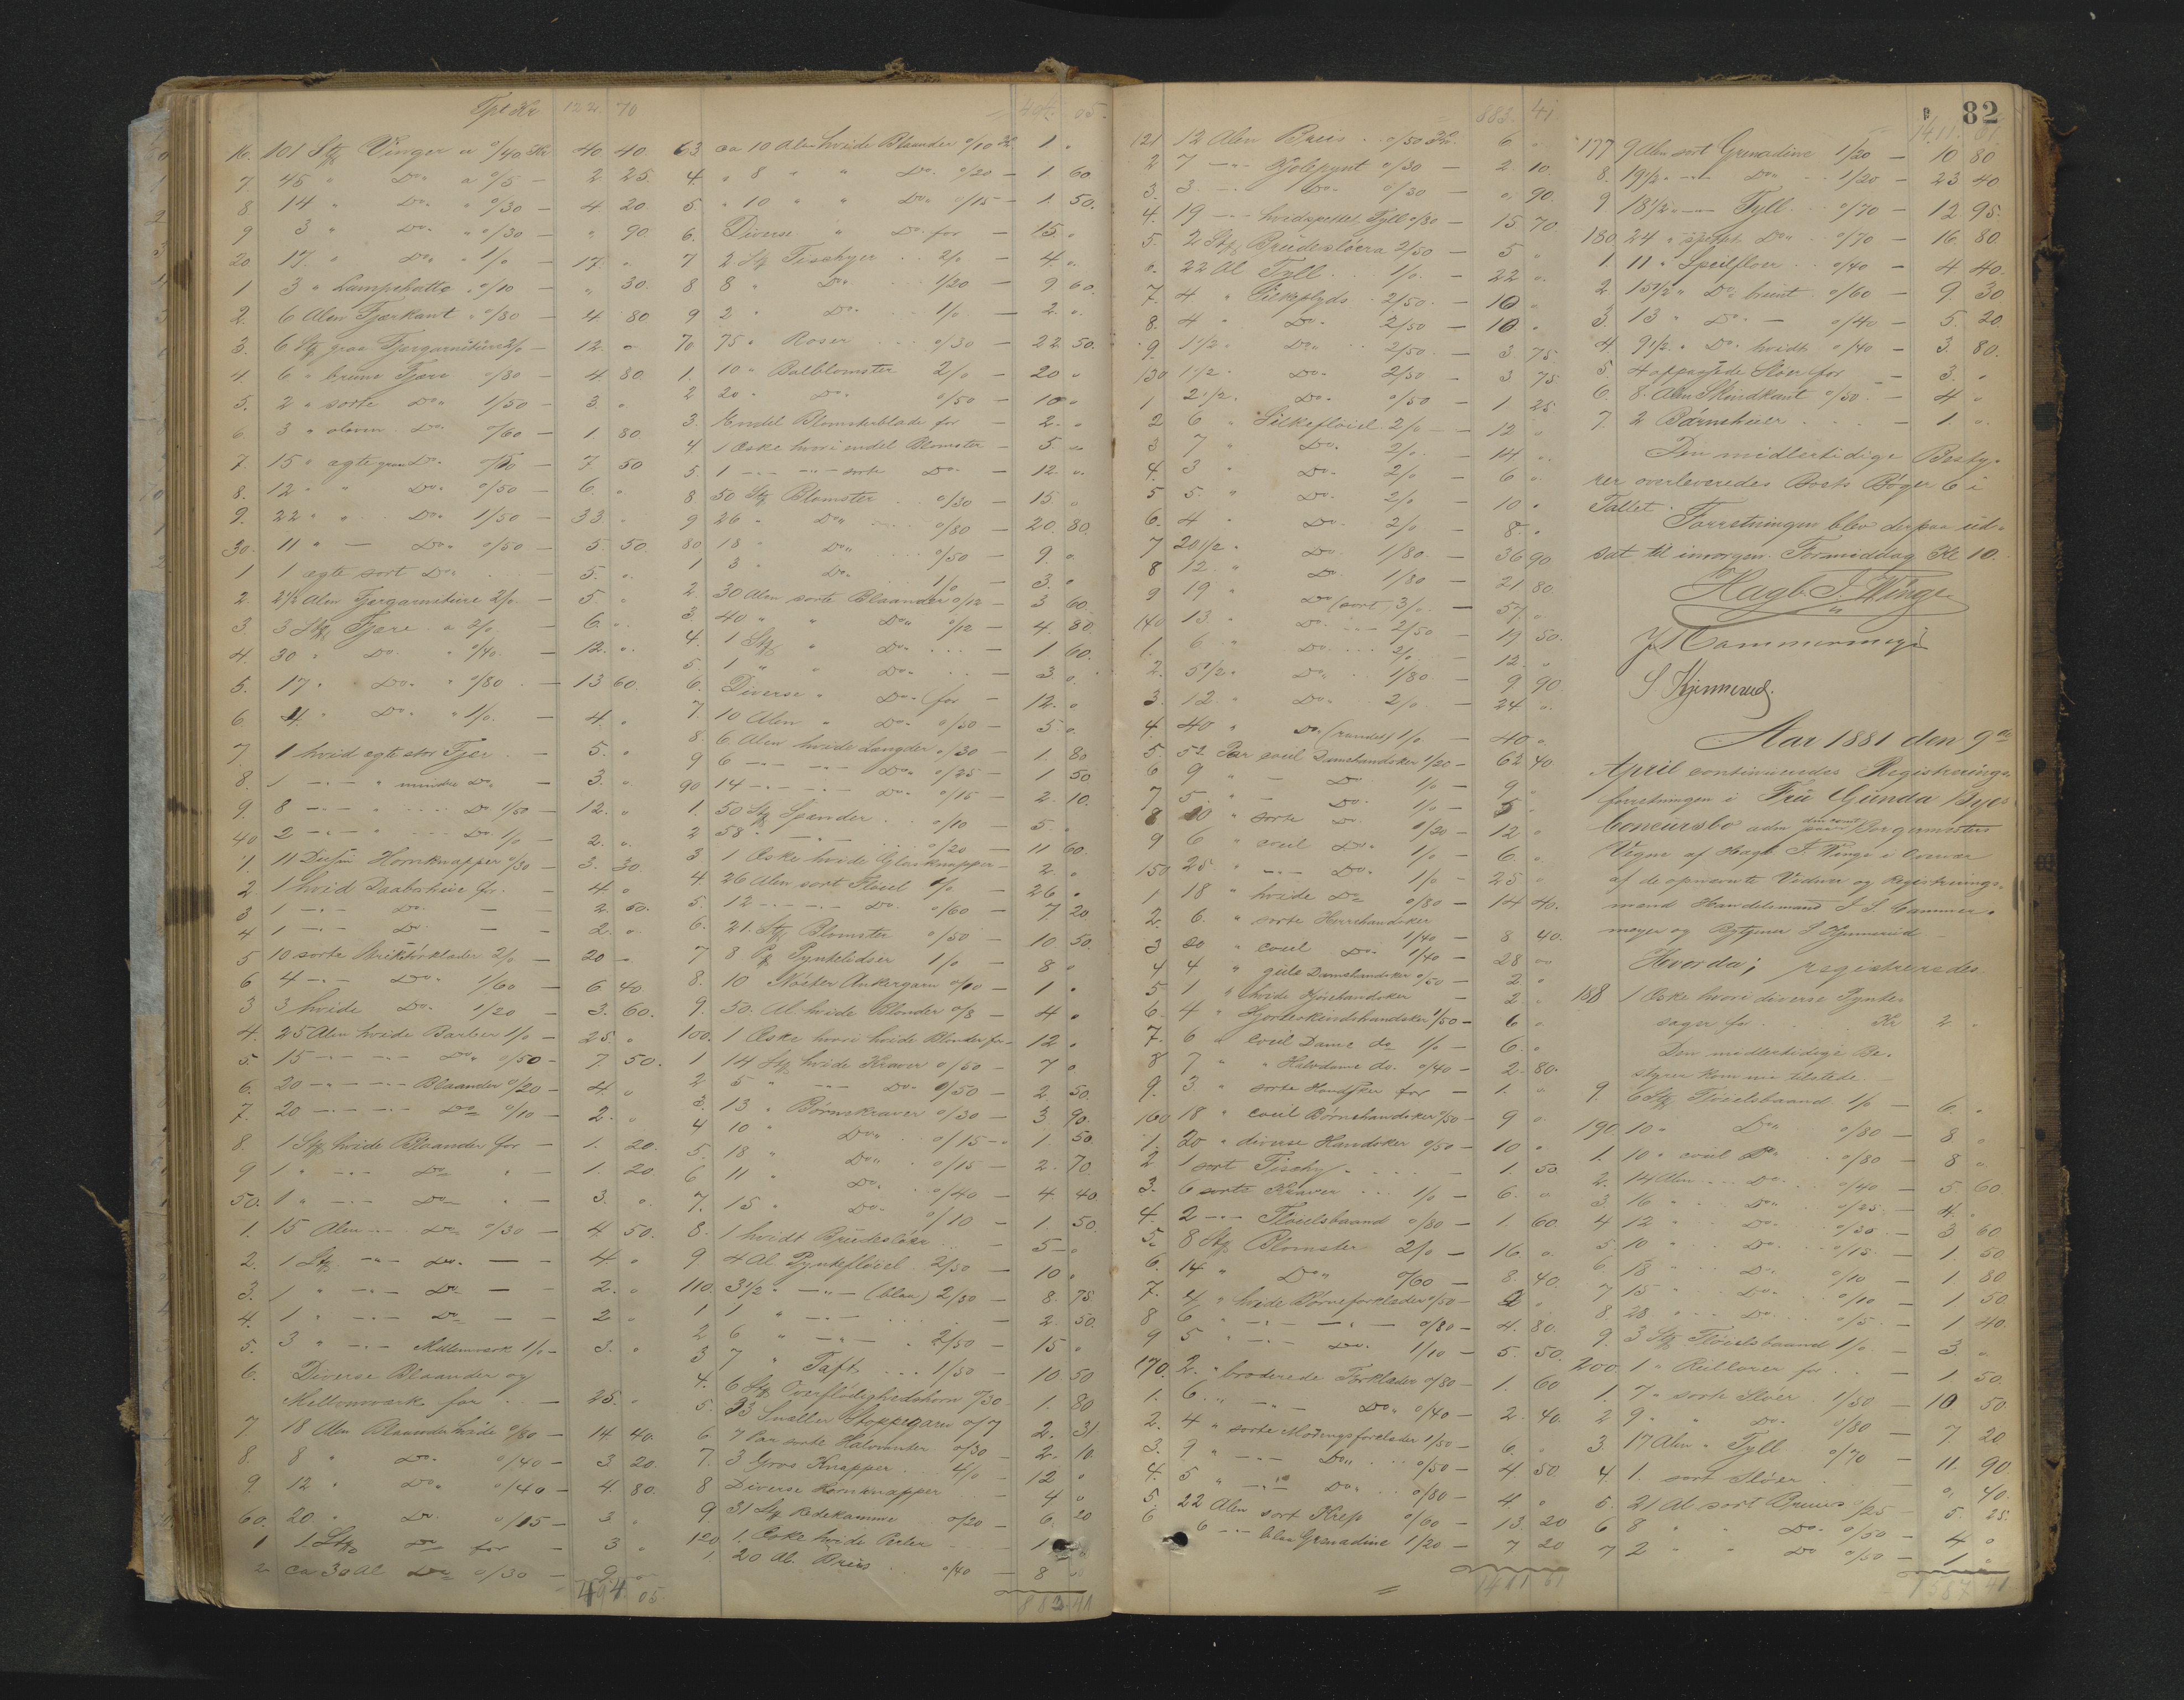 Tpt Kr 122 70
16. 101 Stk Vinger a 0/40 Kr 40 40.
7. 45 " Do " a 0/5 — 2 25.
8. 14 " Do " " 0/30 — 4 20
9 3 " Do " " 0/30 — " 90
20 17 " Do " " 1/0 — 17 "
1 3 " Lampehatte " 0/10 — " 30.
2. 6 Alen Fjærkant " 0/80 — 4 80
3. 6 Stk graa Fjærgarniture 2/0 — 12 "
4. 6 " brune Fjære 0/80 — 4 80.
5. 2 " sorte Do " 1/50 — 3. "
6. 3 " Do. 0/60 — 1. 80
7. 15 " ægte Do. 0/50 — 7 50
8. 12 " " Do. 0/50 — 6. "
9. 22 " " Do. 1/50 — 33. "
30. 11 " — Do. 0/50 — 5. 50.
1 1 ægte sort Do — 5. "
2. 2½ Alen Fjærgarniture 2/0 — 5. "
3. 3 Stk Fjære a 2/0 — 6. "
4. 30 " Do. " 0/40 — 12. "
5. 17 " Do. " 0/80 — 13 60.
6 4 " Do. " 1/0. — 4. "
7. 1 hvid ægte stor Fjær — 5. "
8. 1 — " — " mindre Do — 3. "
9. 8 — " — " Do 1/50 — 12. "
40 2 — " — " Do. 1/0 — 2. "
1. 11 Dusin Hornknapper 0/30 — 3. 30.
2. 1 hvid Daabshue for — 4 "
3 1 — " — Do. — 2. 50.
4 1 — " — Do. — 2. "
5 10 sorte Forklæder 2/0 — 20 —
6 4 — " — Do. 1/60 — 6 40
3 3 hvide Do. 1/20 — 3. 60.
4. 25 Alen hvide 1/0 — 25. "
5. 15 — " — Do. 0/50 — 7. 50.
6. 20 — " — Blaander 0/20 — 4 "
7. 20 — " — Do 0/10 — 2. "
8. 1 Stk hvide Blaander for — 1. 20.
9 1 " — " — Do " — 1. 20
50. 1 " — " — Do — 3. "
1. 15 Alen — Do 0/30 — 4 50.
2. 1 Stk — " — Do. — 4 "
3. 1 " — " — Do — 2. "
4. 1 " — " — Do — 2 "
5. 3 " — " — Mellemværk 1/0 — 3. "
6. Diverse Blaander og
Mellemværk for — 25. "
7. 18 Alen Blaander hvide 0/80 — 14 40.
8. 8 " Do. 0/40 — 3 20.
9. 12 " Do. 0/40 — 4. 80.
60. 20. " Do. 0/15 — 3 "
1 1 Stk Do for — 3 "
2 ca 30 Al Do 0/30 — 9 "
494. 05
494 05.
63 ca 10 Alen hvide Blaander 0/10 Kr. 1 "
4. " 8 " " Do. 0/20 — 1. 60
5. " 10 " " Do. 0/15 — 1. 50.
6. Diverse " Do. for — 15 "
7 2 Stk Fischyer 2/0 — 4 "
8 8 " Do. 1/20 — 9 60.
9 2 " Do. 1/0 — 2. "
70. 75 " Roser 0/30 — 22 50.
1. 10 " Balblomster 2/0 — 20 "
2 20 " Do. 0/50 — 10 "
3. Endel Blomsterblade for — 2. "
4 1 Æske hvori endel Blomster — 5 "
5 1 — " — " — sorte Do — 12. "
8. 50 Stk Blomster 0/30 — 15. "
9 26 " Do. 0/80 — 20. 80.
80 18 " Do. 0/50 — 9. "
1 3 " Do. 1/0 — 3. "
2. 30 Alen sorte Blaander 0/12 — 3 60.
3. 40 " " Do. 0/12 — 4. 80.
4. 1 Stk " Do. — 1 60.
5. 1 " " Do. — 3. "
6. Diverse " Do. for — 12. "
7. 10 Alen " Do. 0/50 — 5. "
8. 6. Alen hvide Længder 0/30 — 1. 80
9 6 — " — Do. 0/25 — 1 50
90 14 — " — Do. 0/15 — 2. 10.
1. 50 Stk Spænder 0/10 — 5. "
2 58 " — " — 0/20 — 11 60.
3. 1 Æske hvide Glasknapper — 2. "
4. 26 Alen sort Fløiel 1/0 — 26 "
5. 12 — " — Do. 0/60 — 7 20.
6. 21. Stk Blomster 0/50 — 10 50.
7 8 Pk Pyntelidser 1/0 — 8 "
8. 10 Nøster Ankergarn 0/10 — 1 "
9. 50. Al. hvide Blonder 0/8 — 4 "
100. 1 Æske hvori hvide Blonder for — 12 "
1 14 Stk hvide Kraver 0/50 — 7 "
2 5 " — " — Do. 0/50 — 2. 50.
3. 13 " Børnekraver 0/30 — 3 90.
4 10 " Do. 0/15 — 1. 50
5. 18 " Do. 0/15 — 2. 70.
6 11 " Do. 0/40 — 4 40
7. 15 " Do. 0/10 — 1. 50.
8. 1 hvidt Brudeslør — 5 "
9 4 Al. Pyntefløiel 2/50 — 10 "
110. 3½ " — " — (blaa) 2/50 — 8. 75
1 1 " — " — 2. 50.
2 6 " — " — 2/50 — 15 "
3 7 " Taft 1/50 — 10 50
4. 6 Stk Overflødighedshorn 0/30 — 1. 80
5. 33 Sneller Stoppegarn 0/7 — 2. 31
6 7 Par sorte Halvvanter 0/30 — 2. 10.
7. 3 Gros Knapper 4/0 — 12 "
8 Diverse Hornknapper — 4 "
9 31 Stk Redekamme 0/20 — 6. 20
120 1. Æske hvide Perler — 1
1. 20 Al. Bræis 0/40 — 8 "
883 41
883. 41.
121 12 Alen Bræis 0/50 Kr. 6 "
2 7 — " — Kjolepynt 0/30 — 2. 10.
3. 3 — " — Do. 0/30 — " 90.
4. 19 — " — hvidspettet Tyll 0/80 — 15 70.
5. 2 Stk Brudesløera 2/50 — 5 "
6. 22 Al Tyll 1/0 — 22 "
7. 4 " Silkeplyds 2/50 — 10 "
8. 4 " Do. 2/50 — 10 "
9. 1½ " Do. 2/50 — 3. 75.
130 1½ " Do. 2/50 — 3 75
1 2½ " Do. 0/50 — 1. 25.
2 6 " Silkefløiel 2/0 — 12 "
3 7 " Do. 2/0 — 14 "
4. 3 " Do. 2/0 — 6 "
5 5. " Do. 2/0 — 10 "
6. 4 " Do. 2/0 — 8. "
7 20½ " Do. 1/80 — 36 90
8 12. " Do. 1/80 — 21 80.
9 19 " Do (sort) 3/0 — 57 "
140 13. " Do. 2/50 — 19 50.
1. 6. " Do. 2/0 — 12. "
2. 5½ " Do. 1/80 — 9. 90.
3. 12. " Do. 2/0 — 24 "
4. 40 " Do. 1/0 — 40 "
5. 52 Par coul Damehandsker 1/20 — 62 40
6 9 " — Do 1/0 — 9 "
7 5. " — Do. 1/0 — 5 "
8 20 " sorte Do. 0/20 — 12. "
9 6 " coul Do. 1/0 — 6. "
150 25 " — " — Do. 1/0 — 25 "
1 18 " hvide Do 0/80 — 14 40.
2. 6. " sorte Herrehandsker 1/40 — 8 40.
3 20 " coul Do. 1/40 — 28 "
4 4 " gule Damehandsker 0/50 — 2. "
5 1 " hvide — 2. "
6. 4 " Hjorteskindshandsker 1/50 — 6 "
7. 6 " coul Dame do 1/0 — 6. "
8 7 " " Halvdame do. 0/40 — 2. 80.
9. 3 " sorte Handsker for — 1. "
160 18 " coul Børnehandsker 0/50 — 9 "
1. 20 " diverse Handsker 0/50 — 10 "
2 1 sort Fischy — 1. 50.
3. 6 sorte Kraver 1/0 — 6. "
4. 2 — " — Fløielsbaand 0/80 — 1. 60
5. 8 Stk Blomster 2/0 — 16. "
6. 14 " Do. 0/60 — 8. 40.
7. 4 " hvide Børneforklæder 0/50 — 2 "
8 6 " — " — 0/80 — 4. 80.
9 5 " — " — Do. 1/10 — 5. 50.
170. 2. " broderede Forklæder 0/80 — 1. 60
1. 6. " — " — Do. 0/40 — 2. 40.
2. 4 " sorte Forklæder 1/50 — 6. "
3. 9 " — " — Do. 0/50 — 4 50.
4. 5 " — " — Do. 0/80 — 4 "
5. 22 Alen sort Krep 0/60 — 13. 20
6 6 — " — blaa Grenadine 1/20 — 7 20
1411 61
P. 82
1411. 61.
177 9 Alen sort Grenadine 1/20 — 10 80
8. 19½ " — Do. 1/20 — 23 40
9 18½ " — Tyll 0/70 — 12. 95.
180. 24 " Do. 0/70 — 16. 80.
1. 11 " Speilfloer 0/40 — 4 40.
2 15½ " Do. brunt 0/60 — 9 30
3. 13 " Do. — 0/40 — 5. 20.
4. 9½ " Do. hvidt 0/40 — 3. 80.
5 4 oppagede Sløer for — 3. "
6. 8. Alen Skindkant 0/50. — 4 "
7. 2 Børnehuer — 1. "
Den midlertidige Besty-
rer overleveredes Boets Bøger 6 i
Tallet.
Forretningen blev derpaa ud-
sat til imorgen Formiddag Kl 10.
Hagb. F. Winge
J S Cammermeyer
S Kjennerud.
Aar 1881 den 9de
April continueredes Registrerings-
forretningen i Frü Gunda Byes
Concursbo adm Borgermesters
Vegne af Hagb F. Winge i Overvær
af de opnævnte Vidner og Registrerings-
mænd Handelsmand J. S. Cammer-
meyer og Bytjener S Kjennerud —
Hvorda: registreredes
188 1 Æske hvori diverse Pynte-
sager for Kr 2 "
Den midlertidige Be-
styrer kom nu tilstede. —
9. 6 Stk Fløielsbaand 1/0 — 6. "
190. 10 " Do. 0/80 — 8 "
1. 10 " coul Do. 0/80 — 8 "
2. 14 Alen Do. 0/40 — 5. 60.
3. 16 " Do. 0/25 — 4. "
4 12 " Do. 0/30 — 3 60.
5. 10 " Do. 0/15 — 1. 50
6 18 " Do. 0/10 — 1. 80
7 15 " Do. 0/10 — 1. 50.
8. 28. " Do. 0/5 — 1 40.
9. 3 Stk Fløielsbaand 1/0 — 3. "
200. 1 " for — 1 50.
1. 7 " sorte Sløer 1/50 — 10 50.
2 9 " " Do. 0/80 — 7. 20
3. 17 Alen " Tyll 0/70 — 11. 90.
4. 1. sort Sløer — " 40.
5. 21 Al sort Bræis 0/25 — 5. 25.
6 8 " " Do. 0/50 — 4 "
7 2 " " Do 0/50 — 1 "
1587 41